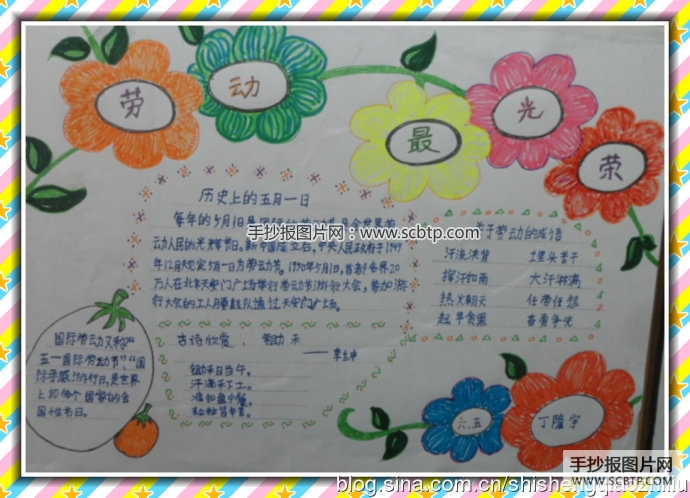 劳动最光荣
历史上的五月一日
每年的5月1日是国际劳动节是全世界劳
动人民的光辉节日。新中国成立后,中央人民政府于1949
年12月规定5月1日为劳动节。1950年5月1日,首都各界20
万人在北京天安门广场举行劳动节游行大会,参加游
行大会的工人月要鼓队通过天安门广场。
手抄报图片网:www.scbtp.com
关于劳动的成语
汗流浃背 埋头苦干
挥汗如雨 大汗淋漓
热火朝天 任劳任怨
起早贪黑 奋勇争先
国际劳动又称“
五一国际劳动节”、“国
际示威
的节日,是世界
上80多个国家的全
国性节日。
古诗欣赏、锄禾
——李绅
锄禾日当午,
汗滴禾下土。
谁知盘中餐,
粒粒皆辛苦。
六、五
丁隆宇
手抄报图片网
WWW.SCBTP.COM
blog.sina.com.cn/shishengqiaozhilu